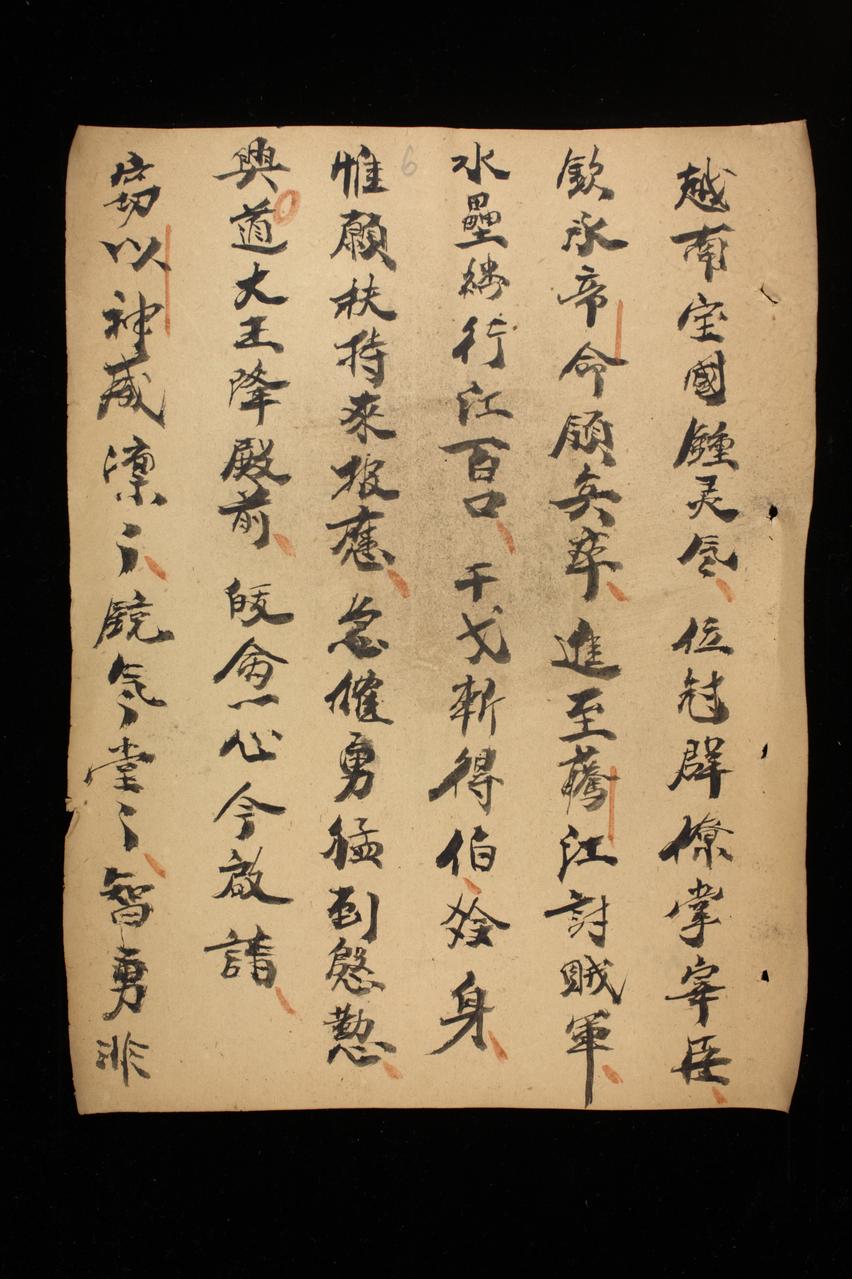 越南宝國鍾灵气位冠群僚掌宰臣
欽承帝命領兵率進至藤江討賊軍
水壘綉行江百口干戈斬得伯灵身
惟願扶持來报應急催勇猛到慇懃
興道大王降殿前皈命一心今啟請
窃以神威凜〻鋭气堂〻智勇非
6